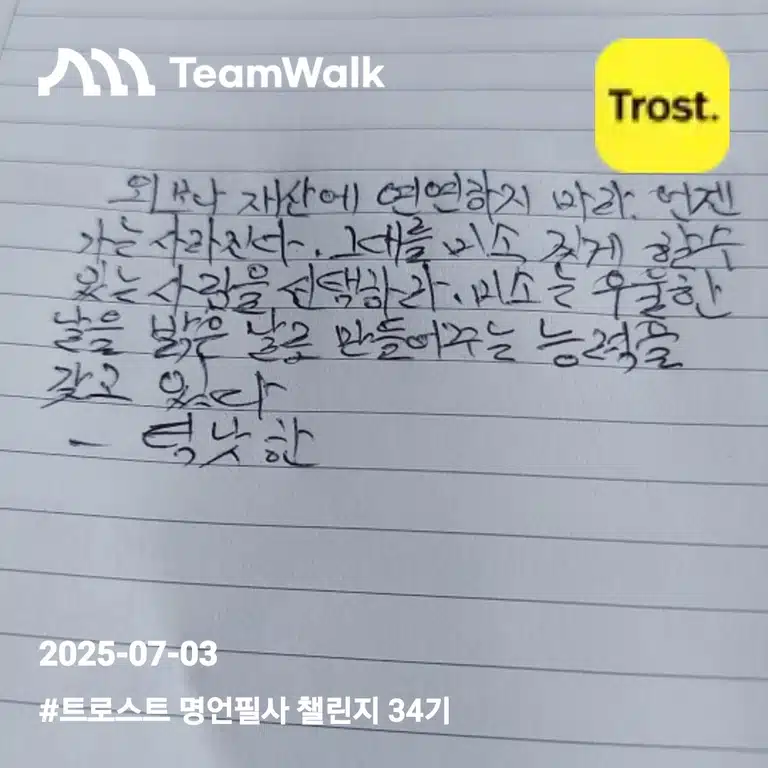 TeamWalk
Trost.
외모나 재산에 연연하지 마라. 언젠
가는 사라진다. 그대를 미소 짓게 할수
있는 사람을 선택하라. 미소는 우울한
날을 밝은 날로 만들어주는 능력을
갖고 있다
- 틱낫한
2025-07-03
#트로스트 명언필사 챌린지 34기